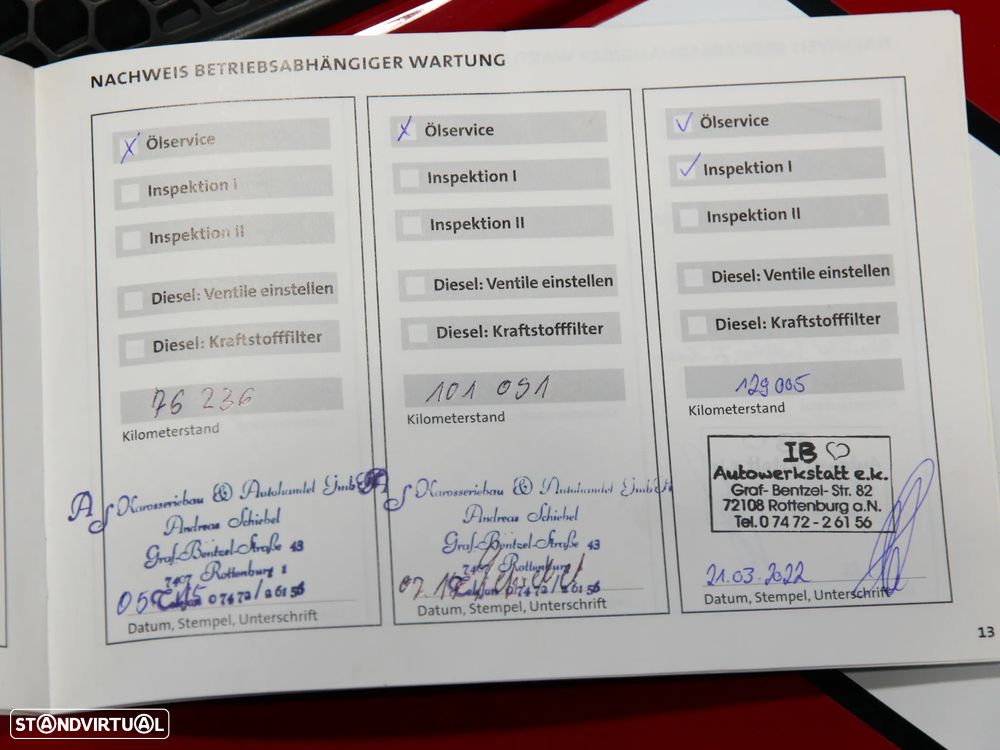 NACHWEIS BETRIEBSABHÄNGIGER WARTUNG
Ölservice
Inspektion I
Inspektion II
Diesel: Ventile einstellen
Diesel: Kraftstofffilter
76 236
Kilometerstand
AS Karosseriebau & Autohandel GmbH
Andreas Schiebel
Graf-Bentzel-Straße 43
7407 Rottenburg 1
Telefon 07472/26156
Datum, Stempel, Unterschrift
Ölservice
Inspektion I
Inspektion II
Diesel: Ventile einstellen
Diesel: Kraftstofffilter
101 091
Kilometerstand
AS Karosseriebau & Autohandel GmbH
Andreas Schiebel
Graf-Bentzel-Straße 43
7407 Rottenburg
Telefon 07472/26156
Datum, Stempel, Unterschrift
Ölservice
Inspektion I
Inspektion II
Diesel: Ventile einstellen
Diesel: Kraftstofffilter
129005
Kilometerstand
IB
Autowerkstatt e.k.
Graf- Bentzel- Str. 82
72108 Rottenburg a.N.
Tel. 0 74 72 - 2 61 56
21.03.2022
Datum, Stempel, Unterschrift
13
STANDVIRTUAL